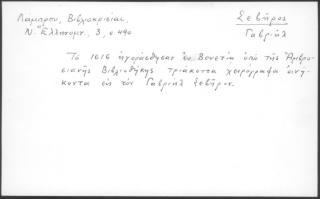 Λάμπρου, Βιβλιοκρισίαι,
Ν. Ἑλληνομν., 3, σ. 490
Σεβῆρος
Γαβριήλ
Τὸ 1616 ἠγοράσθησαν ἐν Βενετίᾳ ὑπὸ τῆς Ἀμβρο-
σιανῆς Βιβλιοθήκης τριάκοντα χειρόγραφα ἀνή-
κοντα εἰς τὸν Γαβριὴλ Σεβῆρον.